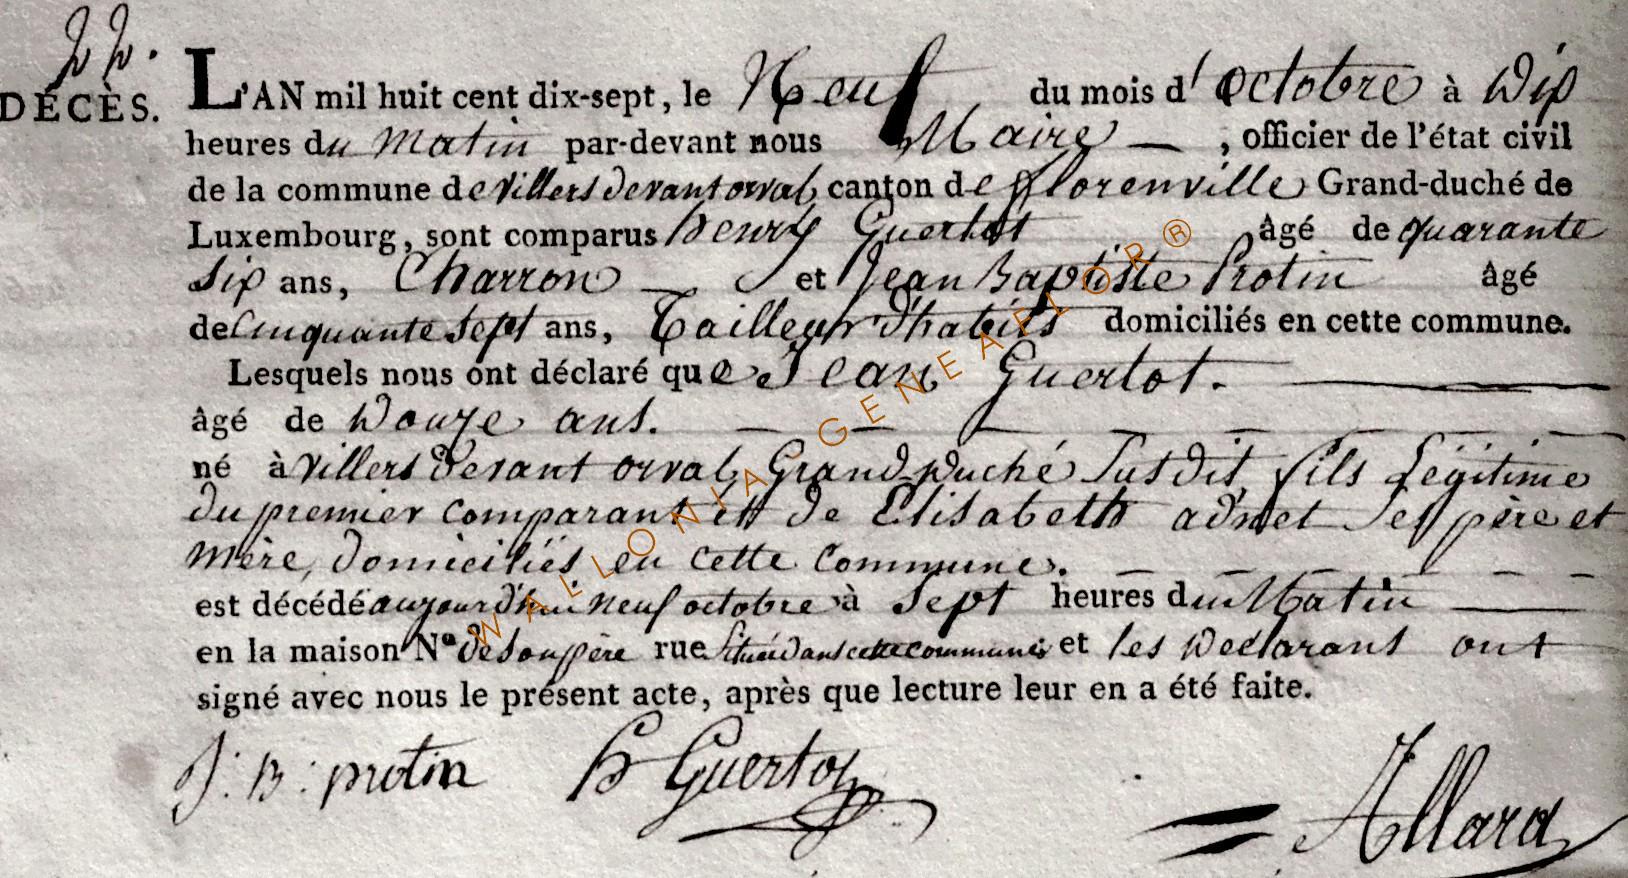 22.
DÉCÈS.
L'AN mil huit cent dix-sept, le Neuf du mois d'Octobre à Dix
heures du Matin par-devant nous Maire, officier de l'état civil
de la commune de villers devant orval, canton de fflorenville Grand-duché de
Luxembourg, sont comparus henry Guertot âgé de quarante
Six ans, Charron et Jean Baptiste Protin âgé
de Cinquante Sept ans, Tailleur d'habits domiciliés en cette commune.
Lesquels nous ont déclaré que Jean Guertot.
âgé de Douze ans.
né à villers devant orval, Grand-Duché Susdit fils Légitime
du premier Comparant et de Elisabeth adnet Ses père et
mère, domiciliés en cette Commune.
est décédé aujourd'hui neuf octobre à Sept heures du Matin
en la maison N.º de Son père rue Située dans cette commune et les Declarans ont
signé avec nous le présent acte, après que lecture leur en a été faite.
J: B: protin h Guertot Allard
WALLONIA GENEAFLOR®